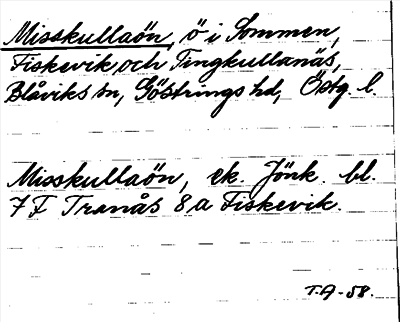 Misskullaön, ö i Sommen,
Fiskevik och Tingkullanäs,
Blåviks sn, Göstrings hd, Östg. l.
Misskullaön, ek. Jönk. bl.
7 F Tranås 8 a Fiskevik.
T.A-58.